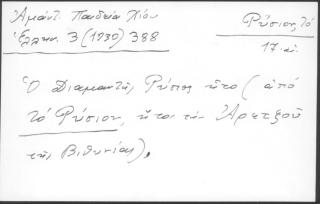 Ἀμάντ. Παιδεία Χίου
Ἑλλην. 3 (1930) 388
Ρύσιον, τό
17 αἰ.
Ὁ Διαμαντῆς Ρύσιος ἦτο (ἀπό
τό Ρύσιον, ἤτοι τήν Ἀρετσοῦ
τῆς Βιθυνίας).